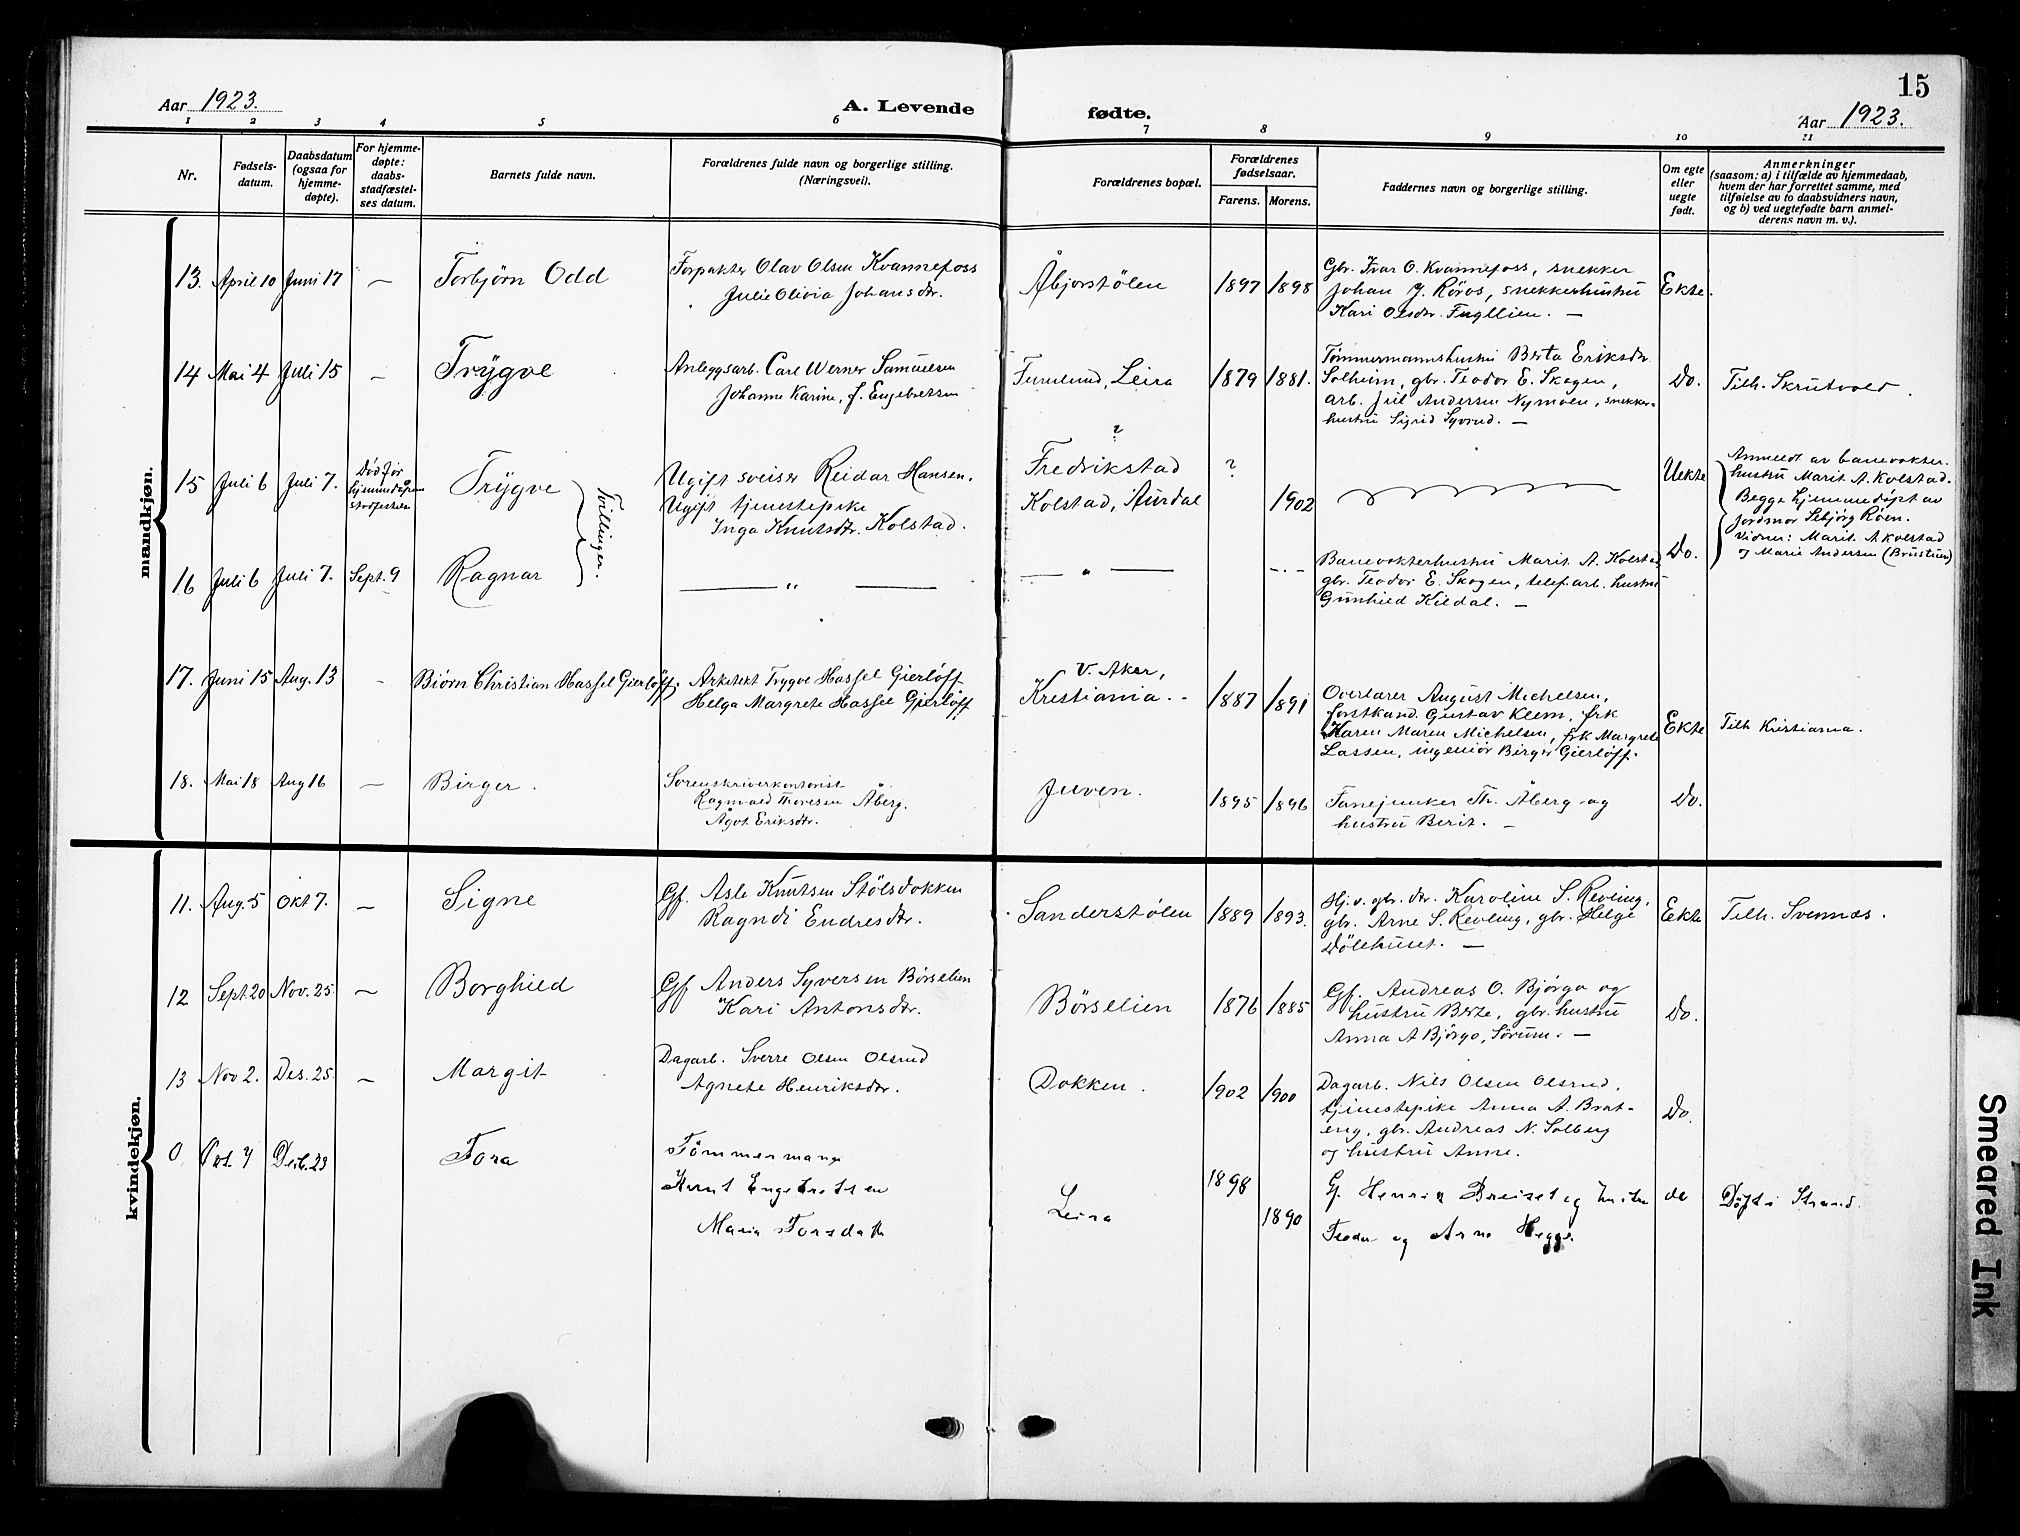 15
Aar 1923. A. Levende fødte. Aar 1923.
1 2 3 4 5 6 7 8 9 10 11
Nr.
Fødsels-
datum.
Daabsdatum
(ogsaa for
hjemme-
døpte).
For hjemme-
døpte:
daabs-
stadfæstel-
ses datum.
Barnets fulde navn.
Forældrenes fulde navn og borgerlige stilling.
(Næringsvei).
Forældrenes bopæl.
Forældrenes
fødselsaar.
Farens. Morens.
Faddernes navn og borgerlige stilling.
Om egte
eller
uegte
født.
Anmerkninger
(saasom: a) i tilfælde av hjemmedaab,
hvem der har forrettet samme, med
tilføielse av to daabsvidners navn,
og b) ved uegtefødte barn anmel-
derens navn m. v.).
mandkjøn.
13. April 10 Juni 17 — Torbjørn Odd
Forpakter Olav Olsen Kvannefoss
Julie Olivia Johansdtr.
Åbjorstølen 1897 1898
Gbr. Ivar O. Kvannefoss, snekker
Johan J. Røros, snekkerhustru
Kari Olsdtr. Fugllien. —
Ekte.
14 Mai 4 Juli 15 — Trygve
Anleggsarb. Carl Werner Samuelsen
Johanne Karine, f. Engebretsen
Furulund, Leira 1879 1881.
Tømmermannshustru Berta Eriksdtr.
Solheim, gbr. Teodor E. Skogen,
arb. Juil Andersen Nymoen, snekker-
hustru Sigrid Syvrud. —
Do. Tilh. Skrutvold.
15 Juli 6 Juli 7.
Død før
hjemmedåpen
stadfestelse
Trygve
Tvillinger.
Ugift sveiser Reidar Hansen.
Ugift tjenestepike
Inga Knutsdtr. Kolstad.
?
Fredrikstad ?
Kolstad, Aurdal 1902
Uekte
Anmeldt av banevokter-
hustru Marit A. Kolstad.
Begge hjemmedøpt av
jordmor Sebjørg Røen.
Vidner: Marit A Kolstad
og Marie Andersen (Brustuen)
16 Juli 6 Juli 7. Sept. 9 Ragnar
— „ —
— „ — - . -
Banevokterhustru Marit A. Kolstad,
gbr. Teodor E. Skogen, telef.arb. hustru
Gunhild Kildal. —
Do.
17. Juni 15 Aug. 13 - Biørn Christian Hassel Gierløff.
Arkitekt Trygve Hassel Gierløff
Helga Margrete Hassel Gierløff
V. Aker,
Kristiania. - 1887 1891
Overlærer August Michelsen,
forstkand. Gustav Klem, frk
Karen Maren Michelsen, frk Margrete
Lassen, ingeniør Birger Gierløff.
Ekte Tilh Kristiania.
18. Mai 18 Aug 16 — Birger.
Sorenskriverkontorist
Ragnvald Thoresen Åberg.
Ågot Eriksdtr.
Juven. 1895 1896
Fanejunker Th. Åberg og
hustru Berit. —
Do.
kvindekjøn.
11. Aug. 5 Okt 7. — Signe
Gf. Asle Knutsen Stølsdokken
Ragndi Endresdtr.
Sanderstølen 1889 1893.
Hj. v. gbr. dtr. Karoline S. Revling,
gbr. Arne S. Revling, gbr. Helge
Dølehuset. —
Eekte Tilh. Svennes.
12 Sept. 20 Nov. 25 — Borghild
Gf Anders Syversen Børselien
Kari Antonsdtr.
Børselien 1876 1885
Gf. Andreas O. Bjørgo og
hustru Berte, gbr. hustru
Anna A Bjørgo, Sørum. —
Do.
13 Nov 2. Des. 25. — Margit
Dagarb. Sverre Olsen Olsrud
Agnete Henriksdtr.
Dokken. 1902 1900
Dagarb. Nils Olsen Olsrud,
tjenestepike Anna A. Brat-
eng, gbr. Andreas N. Solberg
og hustru Anne.
Do.
0 7 23 Tora
Tømmermann
Knut Engebretsen
Maria Torsdatt
Leira
1898
1890
Gf. Henrik Breiset og
Teodor og Arne Hegge.
do Døpt i Strand.
Smeared Ink